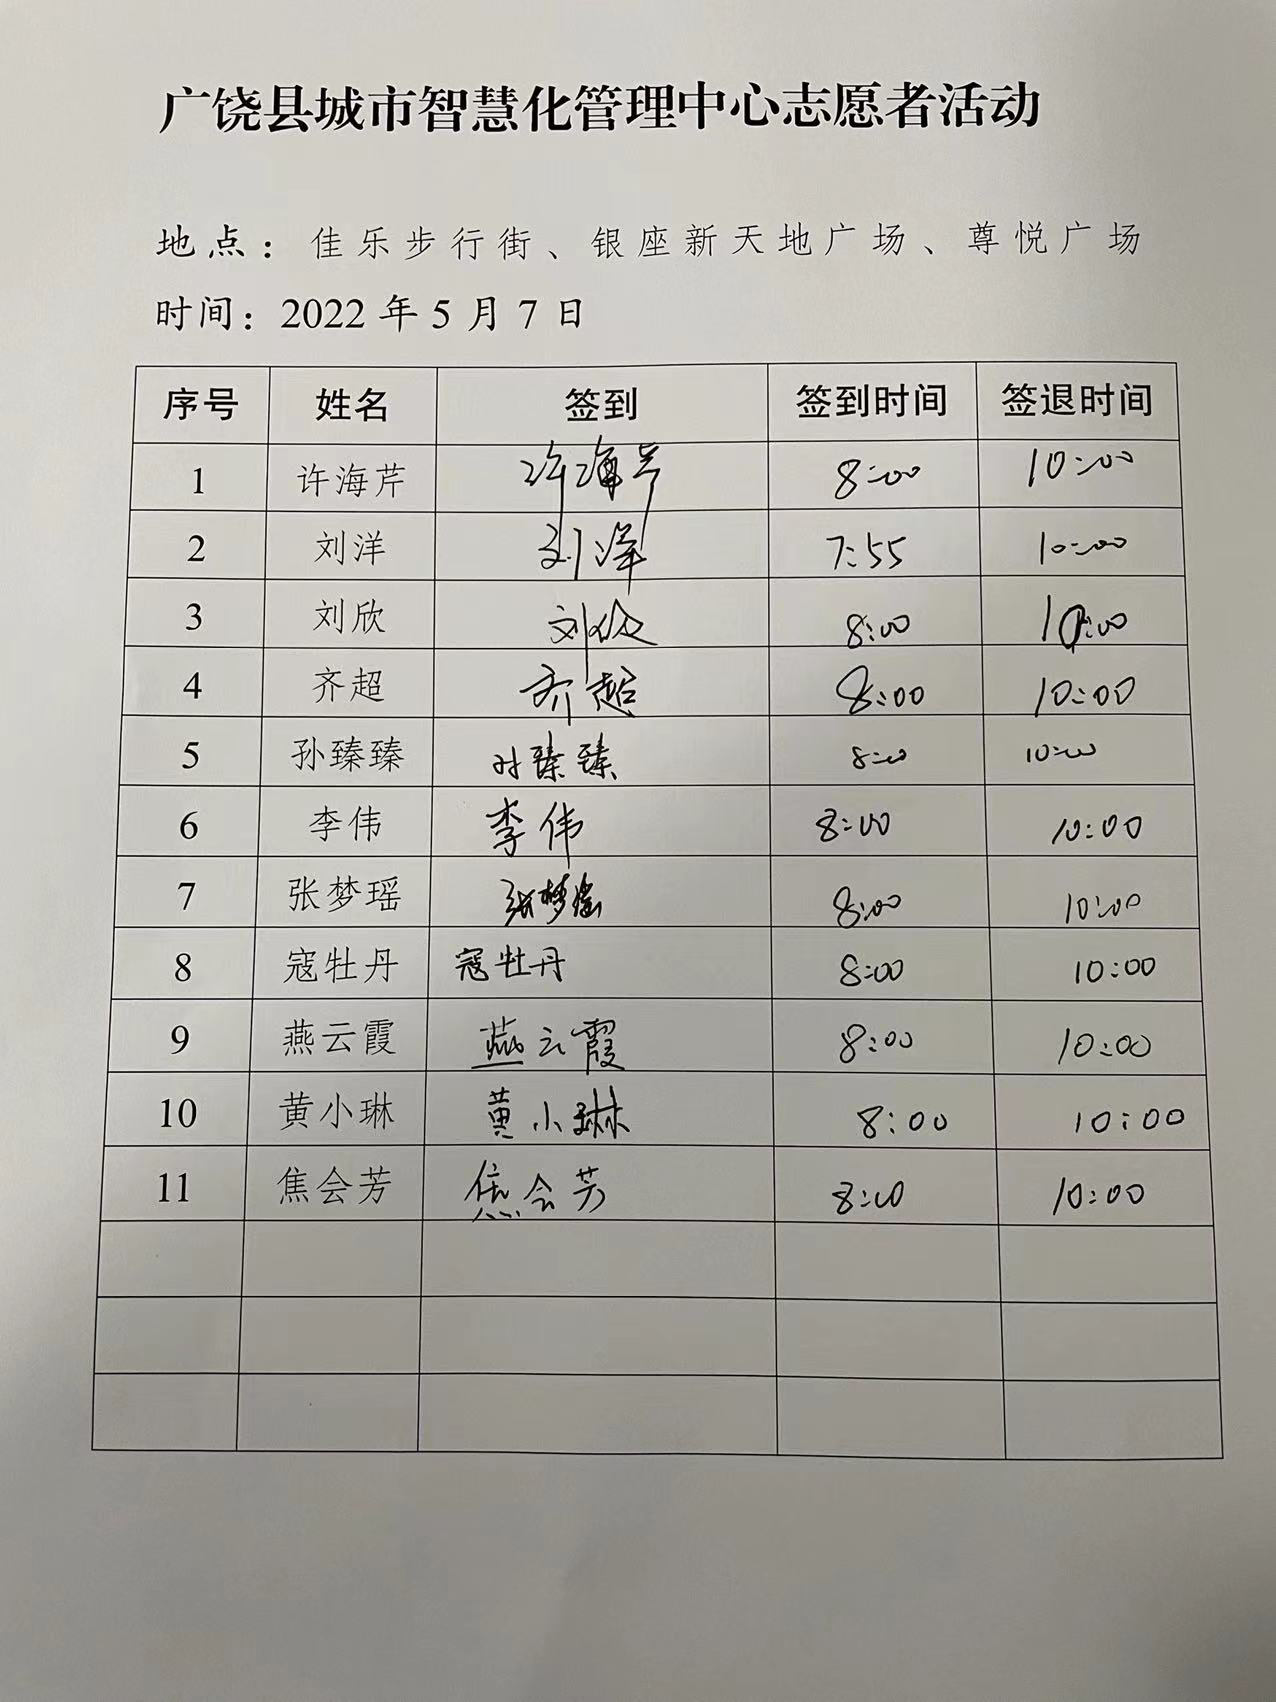 广饶县城市智慧化管理中心志愿者活动
地点：佳乐步行街、银座新天地广场、尊悦广场
时间：2022年5月7日
序号 姓名 签到 签到时间 签退时间
1 许海芹 许海芹 8:00 10:00
2 刘洋 刘洋 7:55 10:00
3 刘欣 刘欣 8:00 10:00
4 齐超 齐超 8:00 10:00
5 孙臻臻 孙臻臻 8:00 10:00
6 李伟 李伟 8:00 10:00
7 张梦瑶 张梦瑶 8:00 10:00
8 寇牡丹 寇牡丹 8:00 10:00
9 燕云霞 燕云霞 8:00 10:00
10 黄小琳 黄小琳 8:00 10:00
11 焦会芳 焦会芳 8:00 10:00